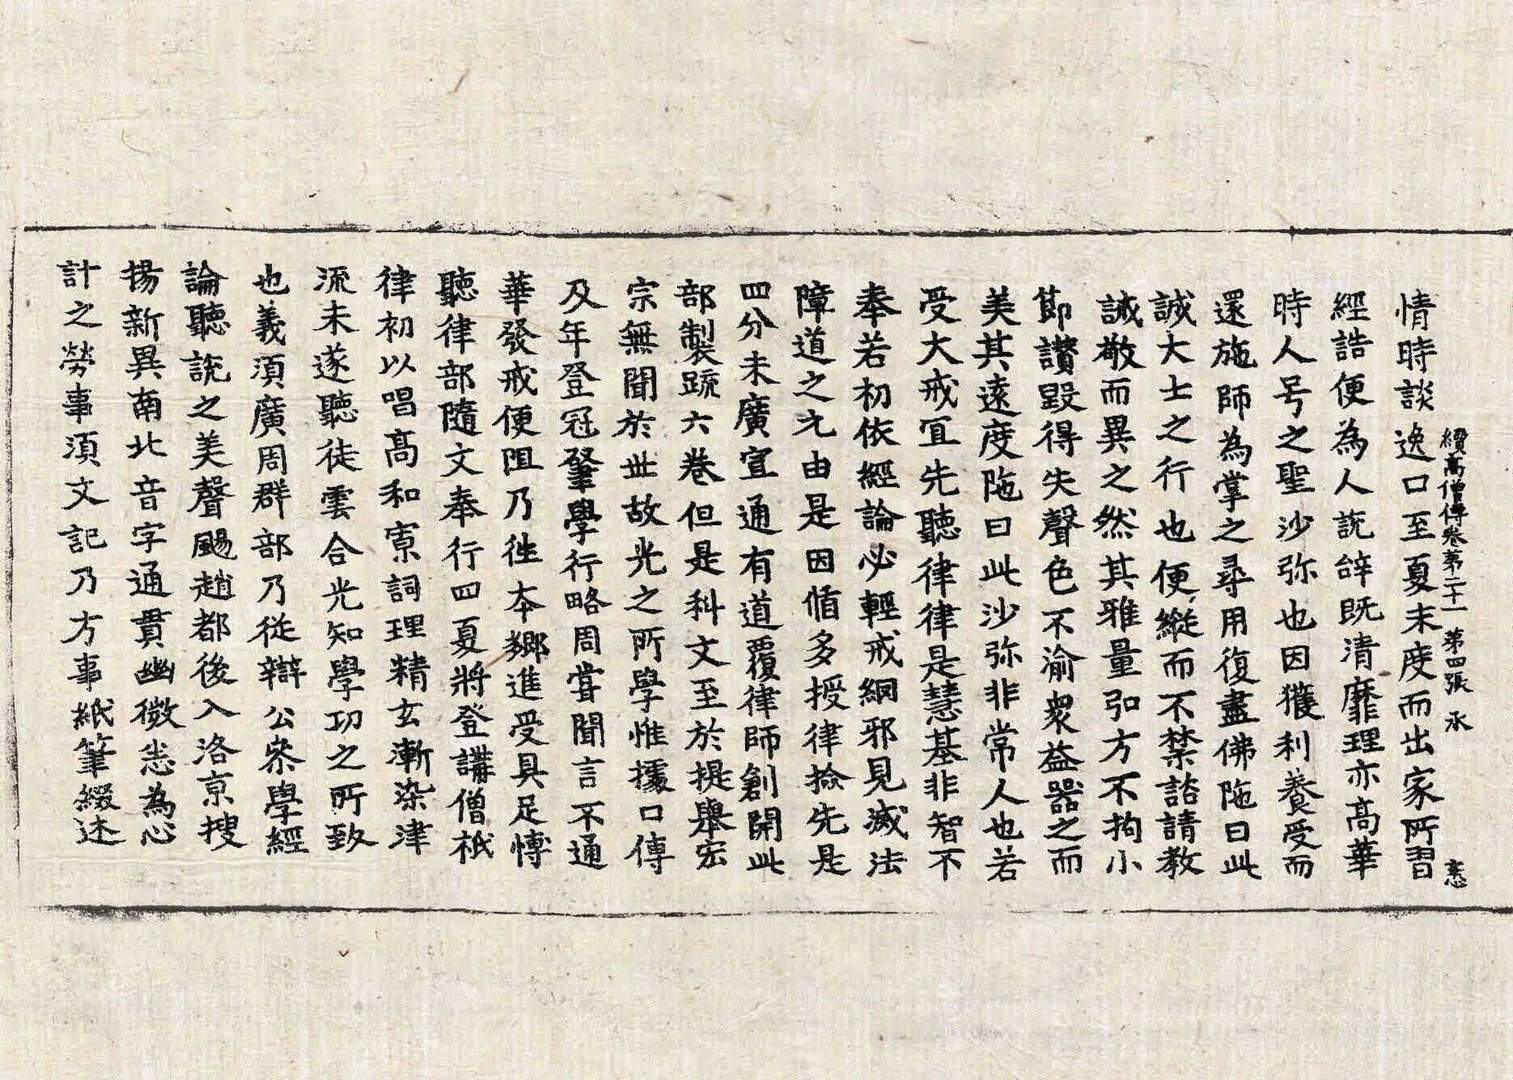 續高僧傳卷苐二十一 苐四張 承
情時談逸口至夏末度而出家所習
經誥便為人說辝既清靡理亦高華
時人号之聖沙弥也因獲利養受而
還施師為掌之尋用復盡佛陁曰此
誠大士之行也便縱而不禁諮請教
誡敬而異之然其雅量弘方不拘小
節讚毀得失聲色不渝衆益器之而
美其遠度陁曰此沙弥非常人也若
受大戒宜先聽律律是慧基非智不
奉若初依經論必輕戒網邪見滅法
障道之元由是因循多授律撿先是
四分未廣宣通有道覆律師創開此
部製䟽六卷但是科文至於提舉宏
宗無聞於世故光之所學惟據口傳
及年登冠肇學行略周嘗聞言不通
華發戒便阻乃徃本鄉進受具足慱
聽律部隨文奉行四夏將登講僧祇
律初以唱高和寡詞理精玄漸染津
流未遂聽徒雲合光知學功之所致
也義須廣周群部乃従辯公叅學經
論聽說之美聲颺趙都後入洛京搜
揚新異南北音字通貫幽微悉為心
計之勞事須文記乃方事紙筆綴述